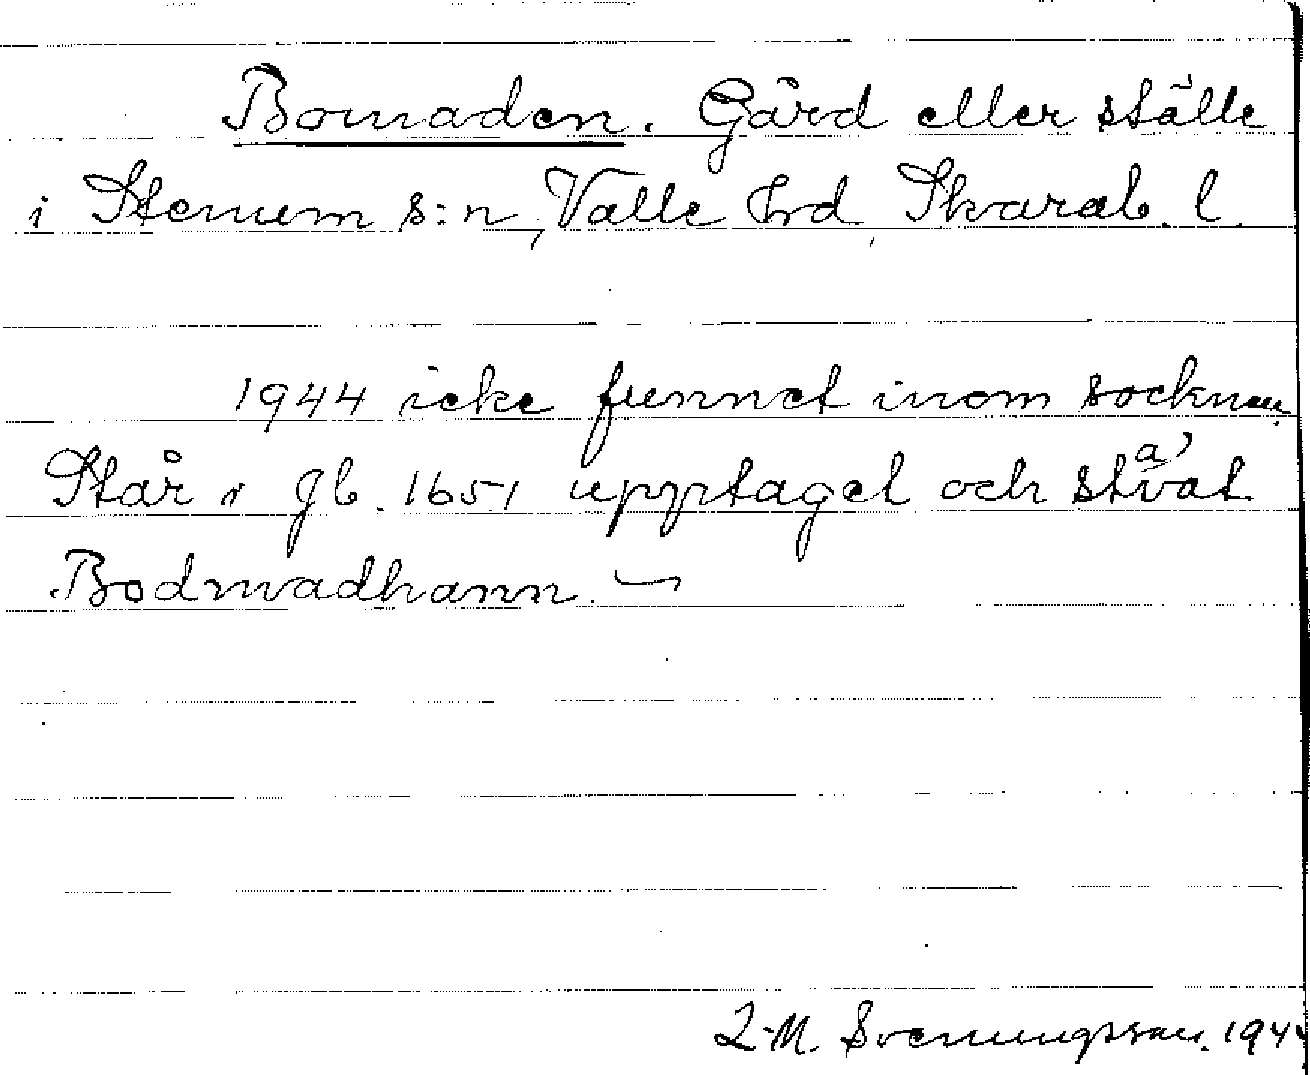 Bomaden. Gård eller ställe
i Stenum s:n, Valle hrd, Skarab. l.
1944 icke funnet inom socknen.
Står i jb. 1651 upptaget och stavat
Bodmadhann.
L-M. Svenungsson. 1944